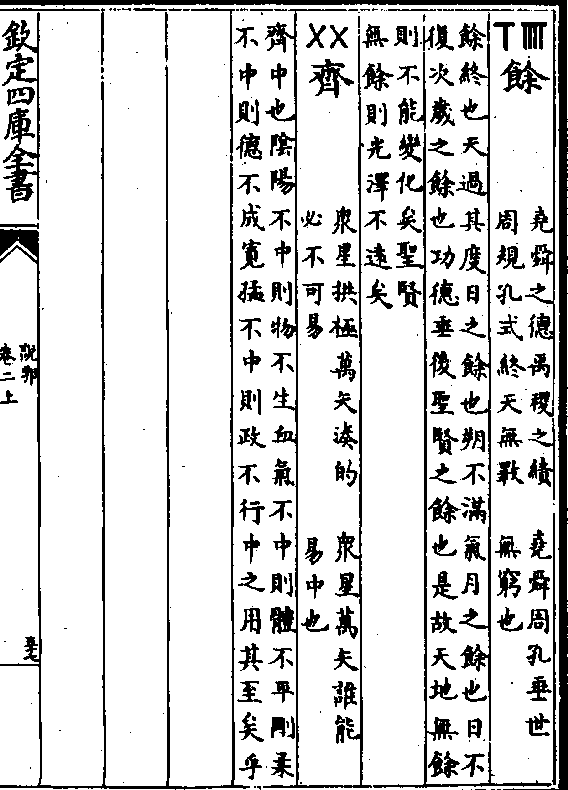 餘
堯舜之德禹稷之績
周規孔式終天無斁
堯舜周孔垂世
無窮也
餘終也天過其度日之餘也朔不滿氣月之餘也日不
復次歲之餘也功德垂後聖賢之餘也是故天地無餘
則不能變化矣聖賢
無餘則光澤不遠矣
XX 齊
眾星拱極萬矢湊的
必不可易
眾星萬矢誰能
易中也
齊中也陰陽不中則物不生血氣不中則體不平剛柔
不中則德不成寬猛不中則政不行中之用其至矣乎
欽定四庫全書
說郛
卷二上